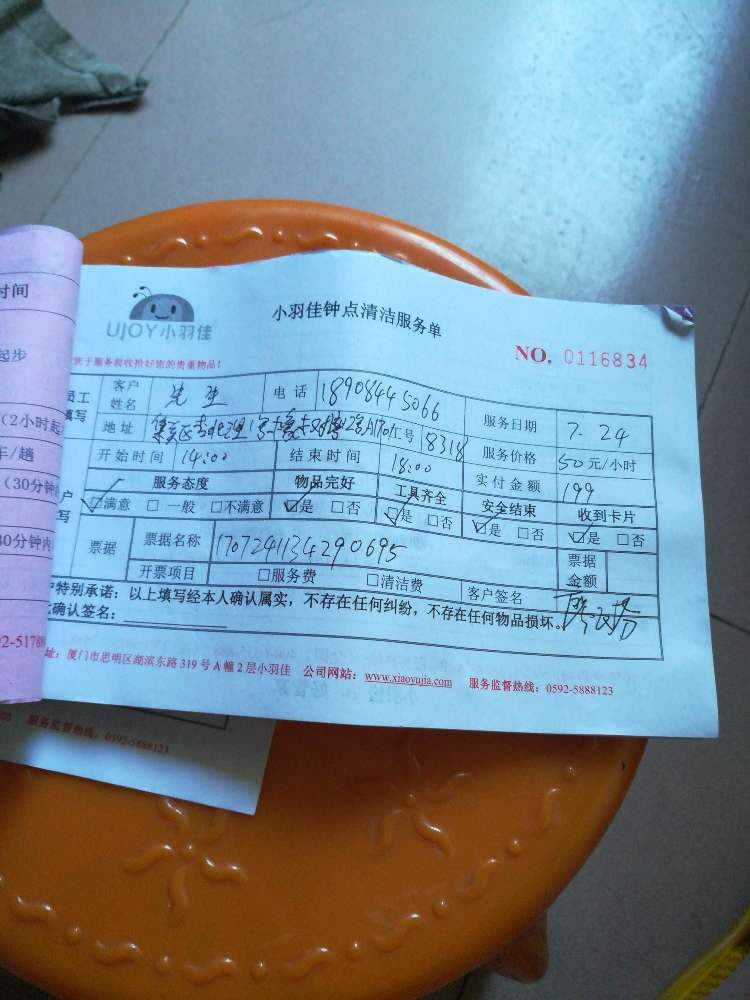 时间
起步
(2小时起
车/趟
(30分钟
30分钟内
92-5178
UJOY小羽佳
小羽佳钟点清洁服务单
NO. 0116834
于服务前收拾好您的贵重物品!
员工 填写 客户姓名 先生 电话 18908445066 服务日期 7.24
地址 工号 8318 服务价格 50元/小时
开始时间 14:00 结束时间 18:00 实付金额 199
服务态度 物品完好 工具齐全 安全结束 收到卡片
☑满意 □一般 □不满意 ☑是 □否 ☑是 □否 ☑是 □否 ☑是 □否
票据 票据名称 1707241134290695 票据金额
开票项目 □服务费 □清洁费 客户签名
户特别承诺:以上填写经本人确认属实,不存在任何纠纷,不存在任何物品损坏。
确认签名:
址:厦门市思明区湖滨东路 319 号 A 幢 2 层小羽佳 公司网站:www.xiaoyujia.com 服务监督热线:0592-5888123
om 服务监督热线:0592-5888123